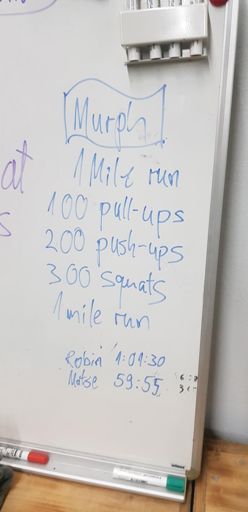 Murph
1 Mile run
100 pull-ups
200 push-ups
300 squats
1 mile run
Robin 1:01:30
59:55
at
s